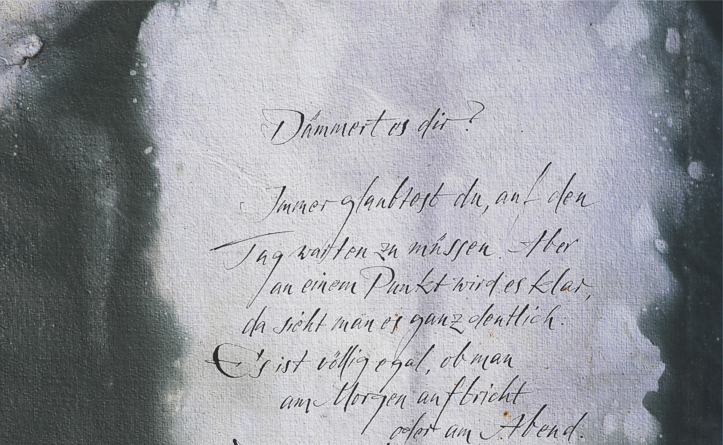 Dämmert es dir?
Immer glaubtest du, auf den
Tag warten zu müssen. Aber
an einem Punkt wird es klar,
da sieht man es ganz deutlich:
Es ist völlig egal, ob man
am Morgen aufbricht
oder am Abend.